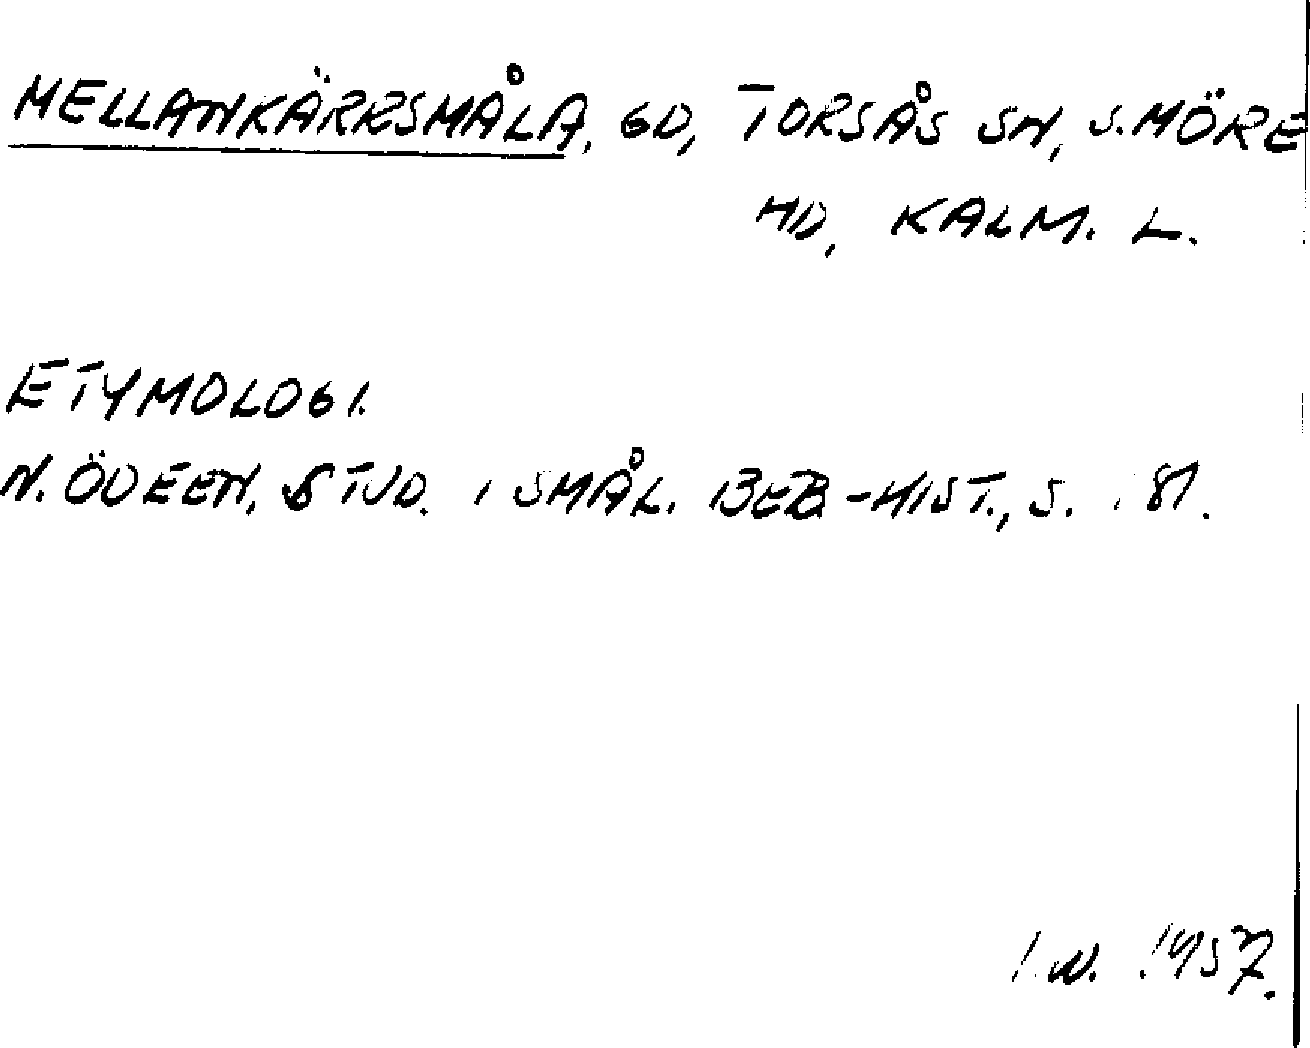 MELLANKÄRRSMÅLA, GD, TORSÅS SN, S. MÖRE
HD, KALM. L.
ETYMOLOGI.
N. ÖDEEN, STUD. I SMÅL. BEB.-HIST., S. 181.
I. N. 1957.